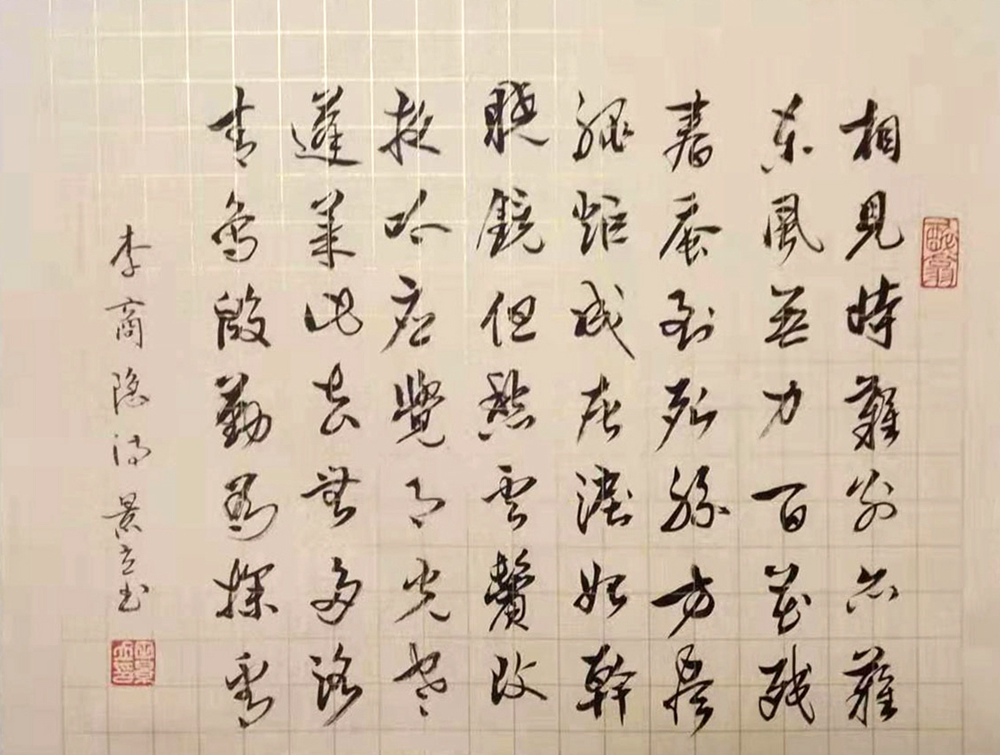 相見時難别亦難
东風无力百花残
春蚕到死絲方盡
蠟炬成灰淚始幹
曉鏡但愁雲鬢改
夜吟应覺月光寒
蓬萊此去無多路
青鳥殷勤為探看
李商隐诗 景立书